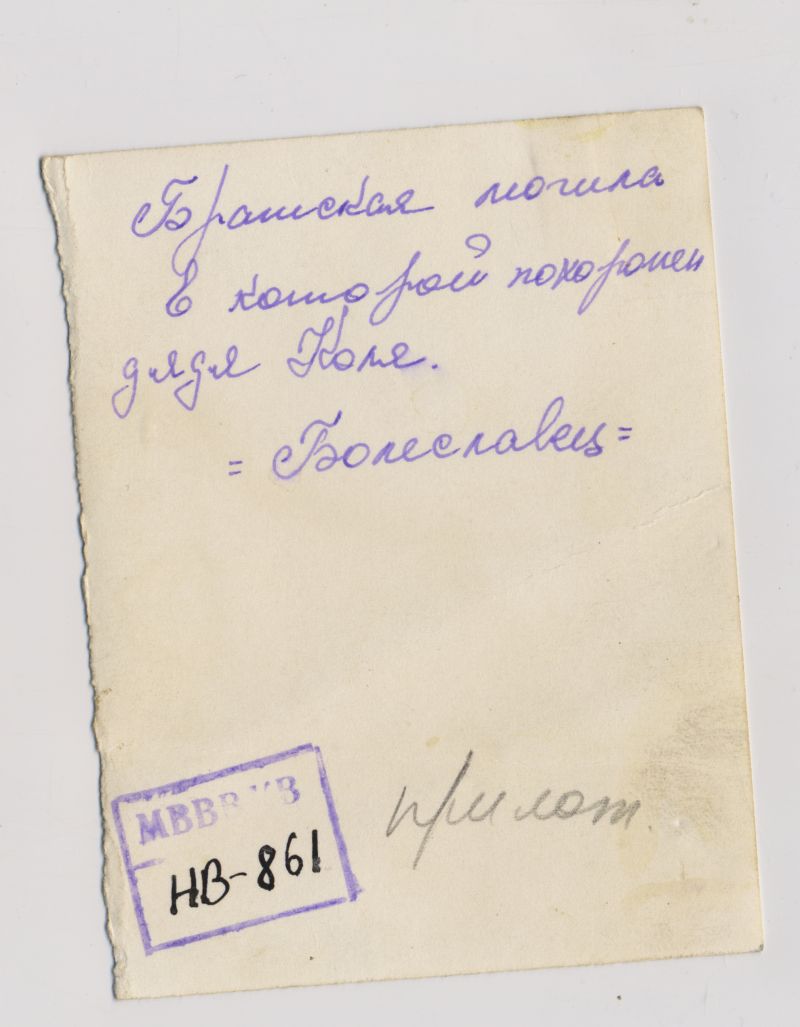 Братская могила
в которой похоронен
дядя Коля.
= Болеславец =
прилот.
НВ-861